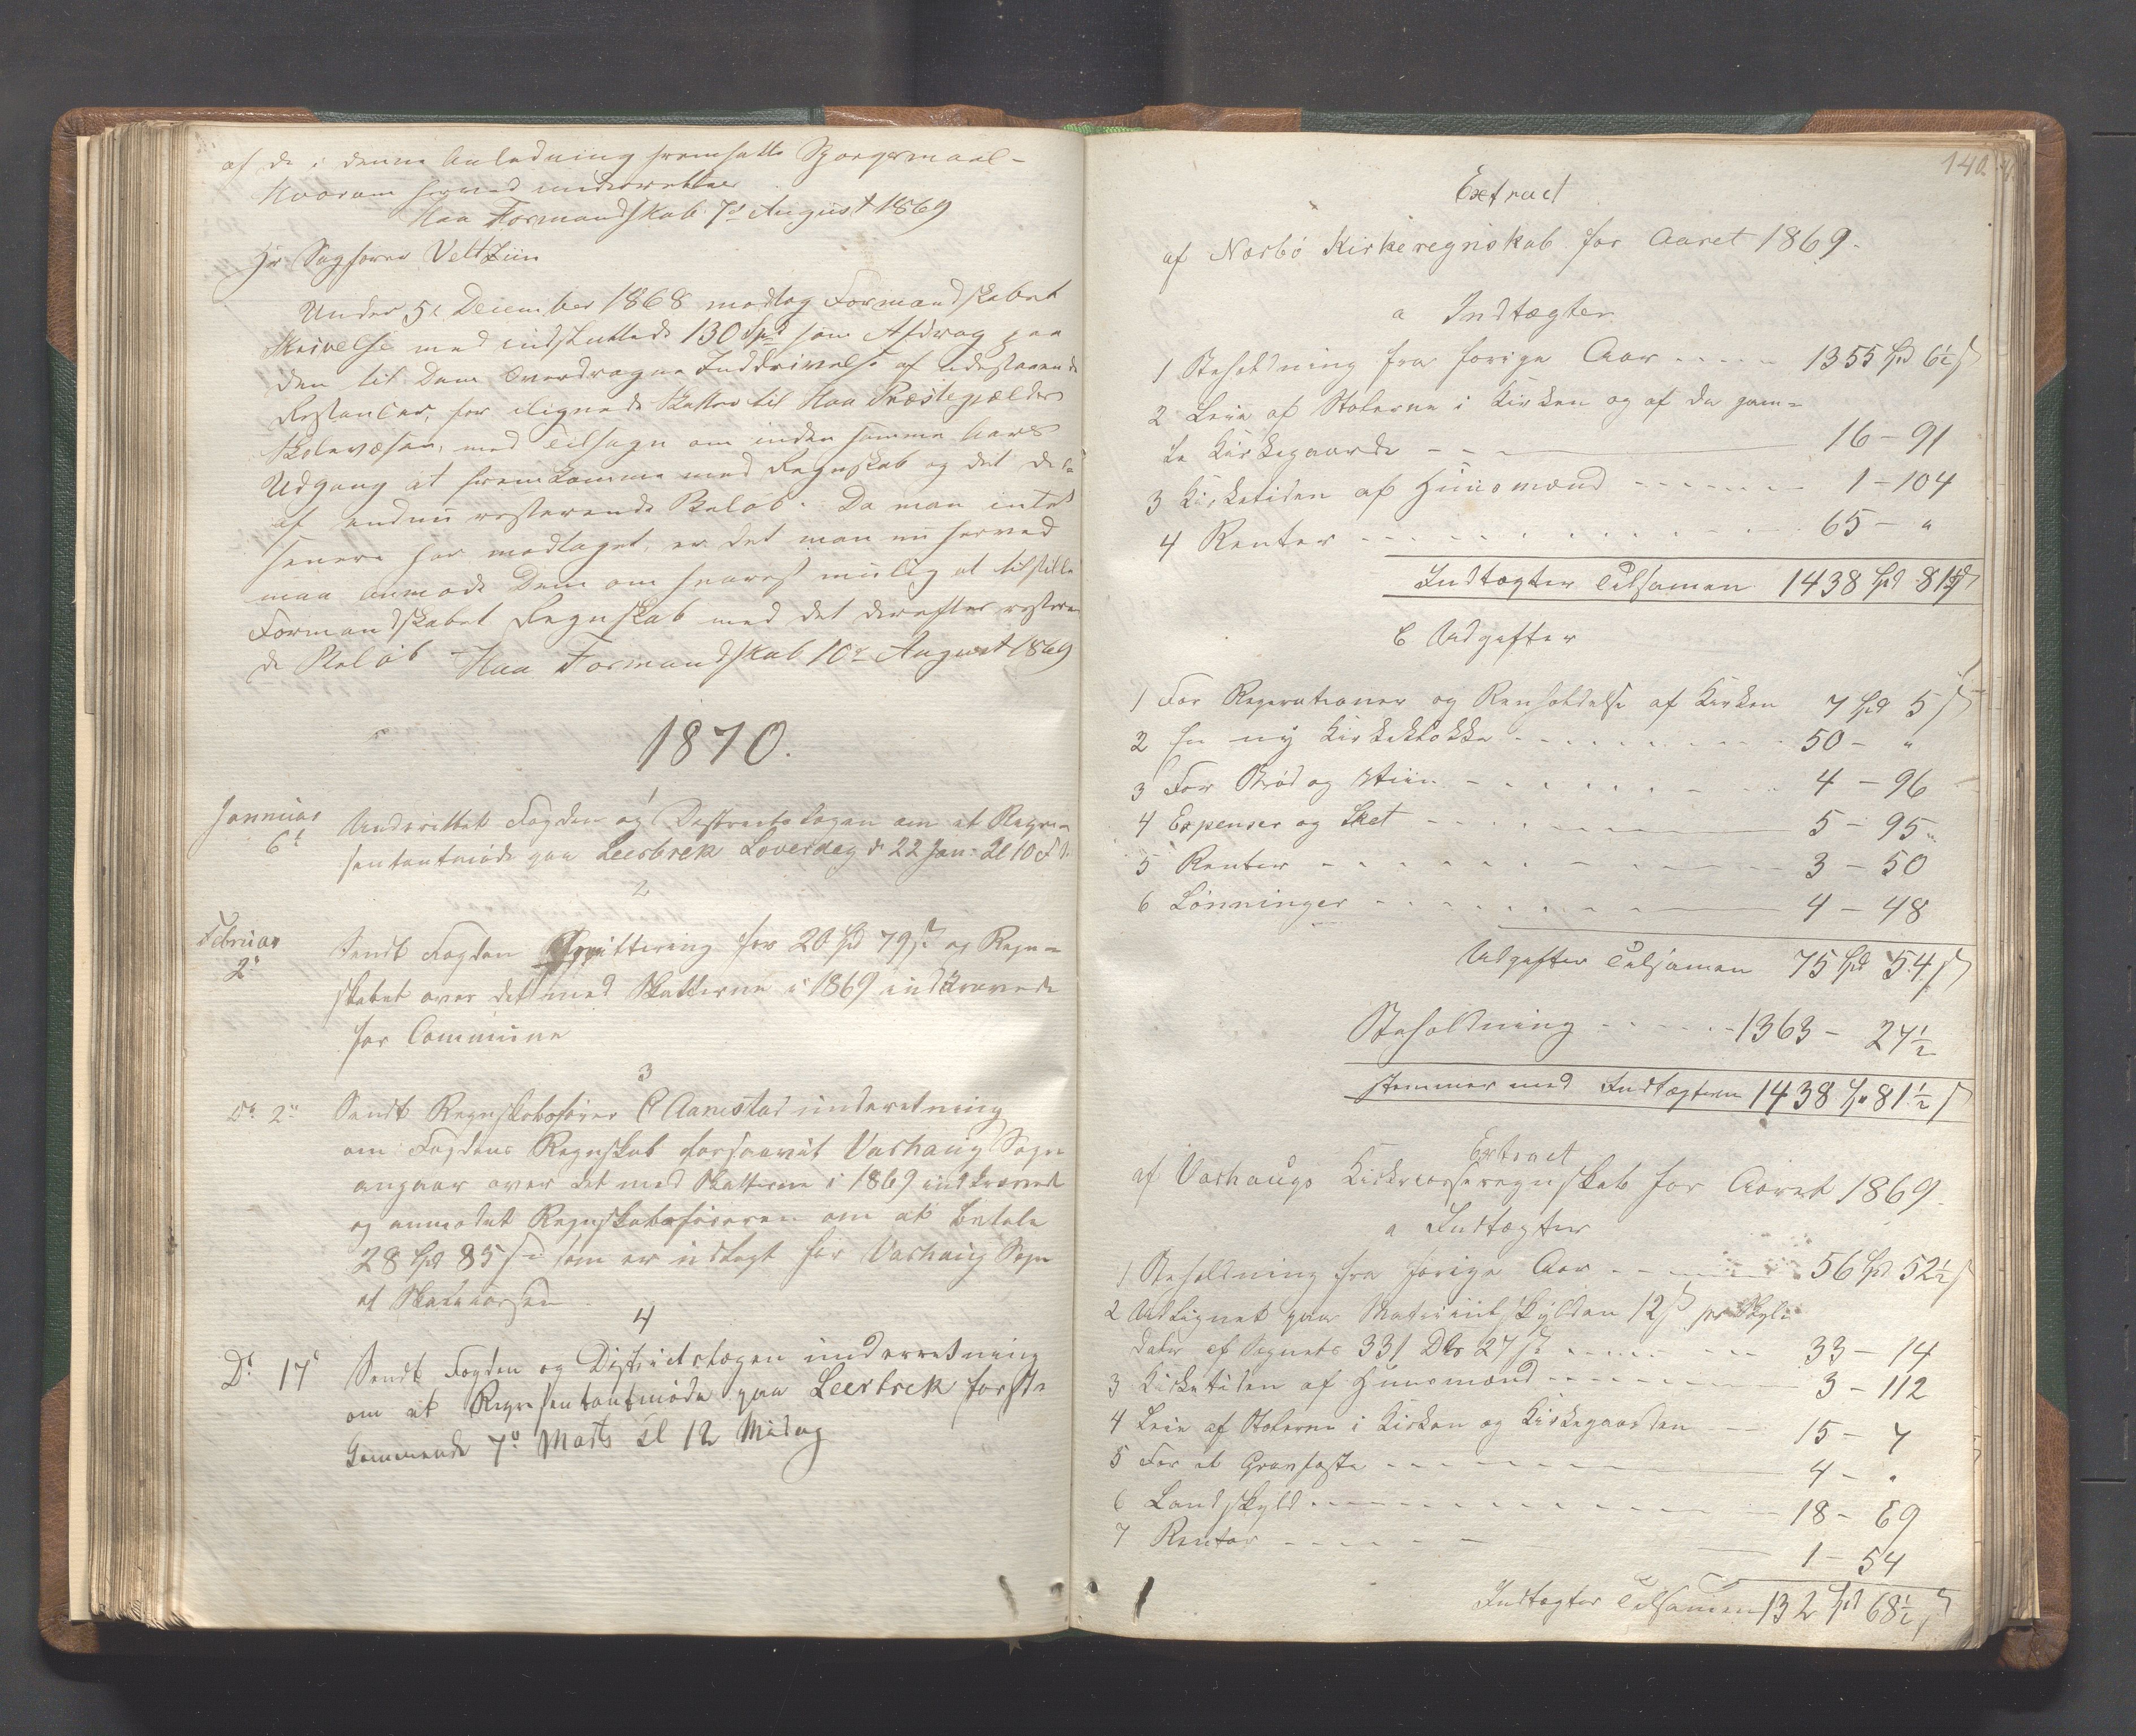 af de i denne Anledning fremsatte Spørgsmaal -
Hvorom herved underrettes
Haa Formandskab 7d August 1869
Hr Sagfører Veltziin
Under 5t December 1868 modtog Formandskabet
Skrivelse med indsluttede 130 Spd som Afdrag paa
den til Dem overdragne Inddrivelse af udestaaende
Restancer, for utlignede Skatter til Haa Præstegjælds
Skolevæsen, med Tilsagn om inden samme Aars
Udgang at fremkomme med Regnskab og det der
af endnu resterende Beløb. Da man intet
senere har modtaget, er det man nu herved
maa anmode Dem om snarest mulig at tilstille
Formandskabet Regnskab med det derefter restere
de Beløb - Haa Formandskab 10d August 1869
1870.
1
Januar Underrettet Fogden og Destrictslægen om at Repre-
6t sentantmøde paa Leerbrek Løverdag d 22 Jan. Kl 10 F.
2
Februar
2d Sendt Fogden Qvittering for 20 Spd 79 s og Regn-
skabet over det med Skatterne i 1869 indkrævede
for Commune
3
Do 2d Sendt Regnskabsfører C Aanestad underetning
om Fogdens Regnskab forsaavit Varhaug Sogn
angaar over det med Skatterne i 1869 indkrævede
og anmodet Regnskabsføreren om at betale
28 Spd 85 s som er udlagt for Varhaug Sogn
af Skatecassen
4
Do 17d Sendt Fogden og Districtslægen underretning
om at Representantmøde paa Leerbrek første
kommende 7d Marts Kl 12 Midag
140
Extract
af Nærbø Kirkeregnskab for Aaret 1869.
a Indtægter
1 Beholdning fra forige Aar - - - - 1355 Spd 6½ s
2 Leie af Stolerne i Kirken og af de gam-
le Kirkegaarde - - - 16 - 91
3 Kirketiden af Huusmænd - - - - 1 - 104
4 Renter - - - - 65 - "
Indtægter Tilsamen 1438 Spd 81½ s
b Udgifter
1 For Reperationer og Renholdelse af Kirken 7 Spd 5 s
2 En ny Kirkeklokke - - - - 50 - "
3 For Brød og Viin - - - - 4 - 96
4 Expenser og Sket - - - - 5 - 95
5 Renter - - - - 3 - 50
6 Lønninger - - - - 4 - 48
Udgifter Tilsamen 75 Spd 54 s
Beholdning - - - - 1363 - 27½
stemmer med Indtægterne 1438 Spd 81½ s
Extract
af Varhaugs Kirkecasseregnskab for Aaret 1869.
a Indtægter
1 Beholdning fra forige Aar - - - 56 Spd 52½ s
2 Udlignet paa Matriculskylden 12 s pr Skyl-
daler af Sognets 331 Dlr 27 s - - - - 33 - 14
3 Kirketiden af Huusmænd - - - - 3 - 112
4 Leie af Stolerne i Kirken og Kirkegaarden - - 15 - 7
5 For et Gravfæste - - - - 4 - "
6 Landskyld - - - - 18 - 69
7 Renter - - - - 1 - 54
Indtægter Tilsamen 132 Spd 68½ s